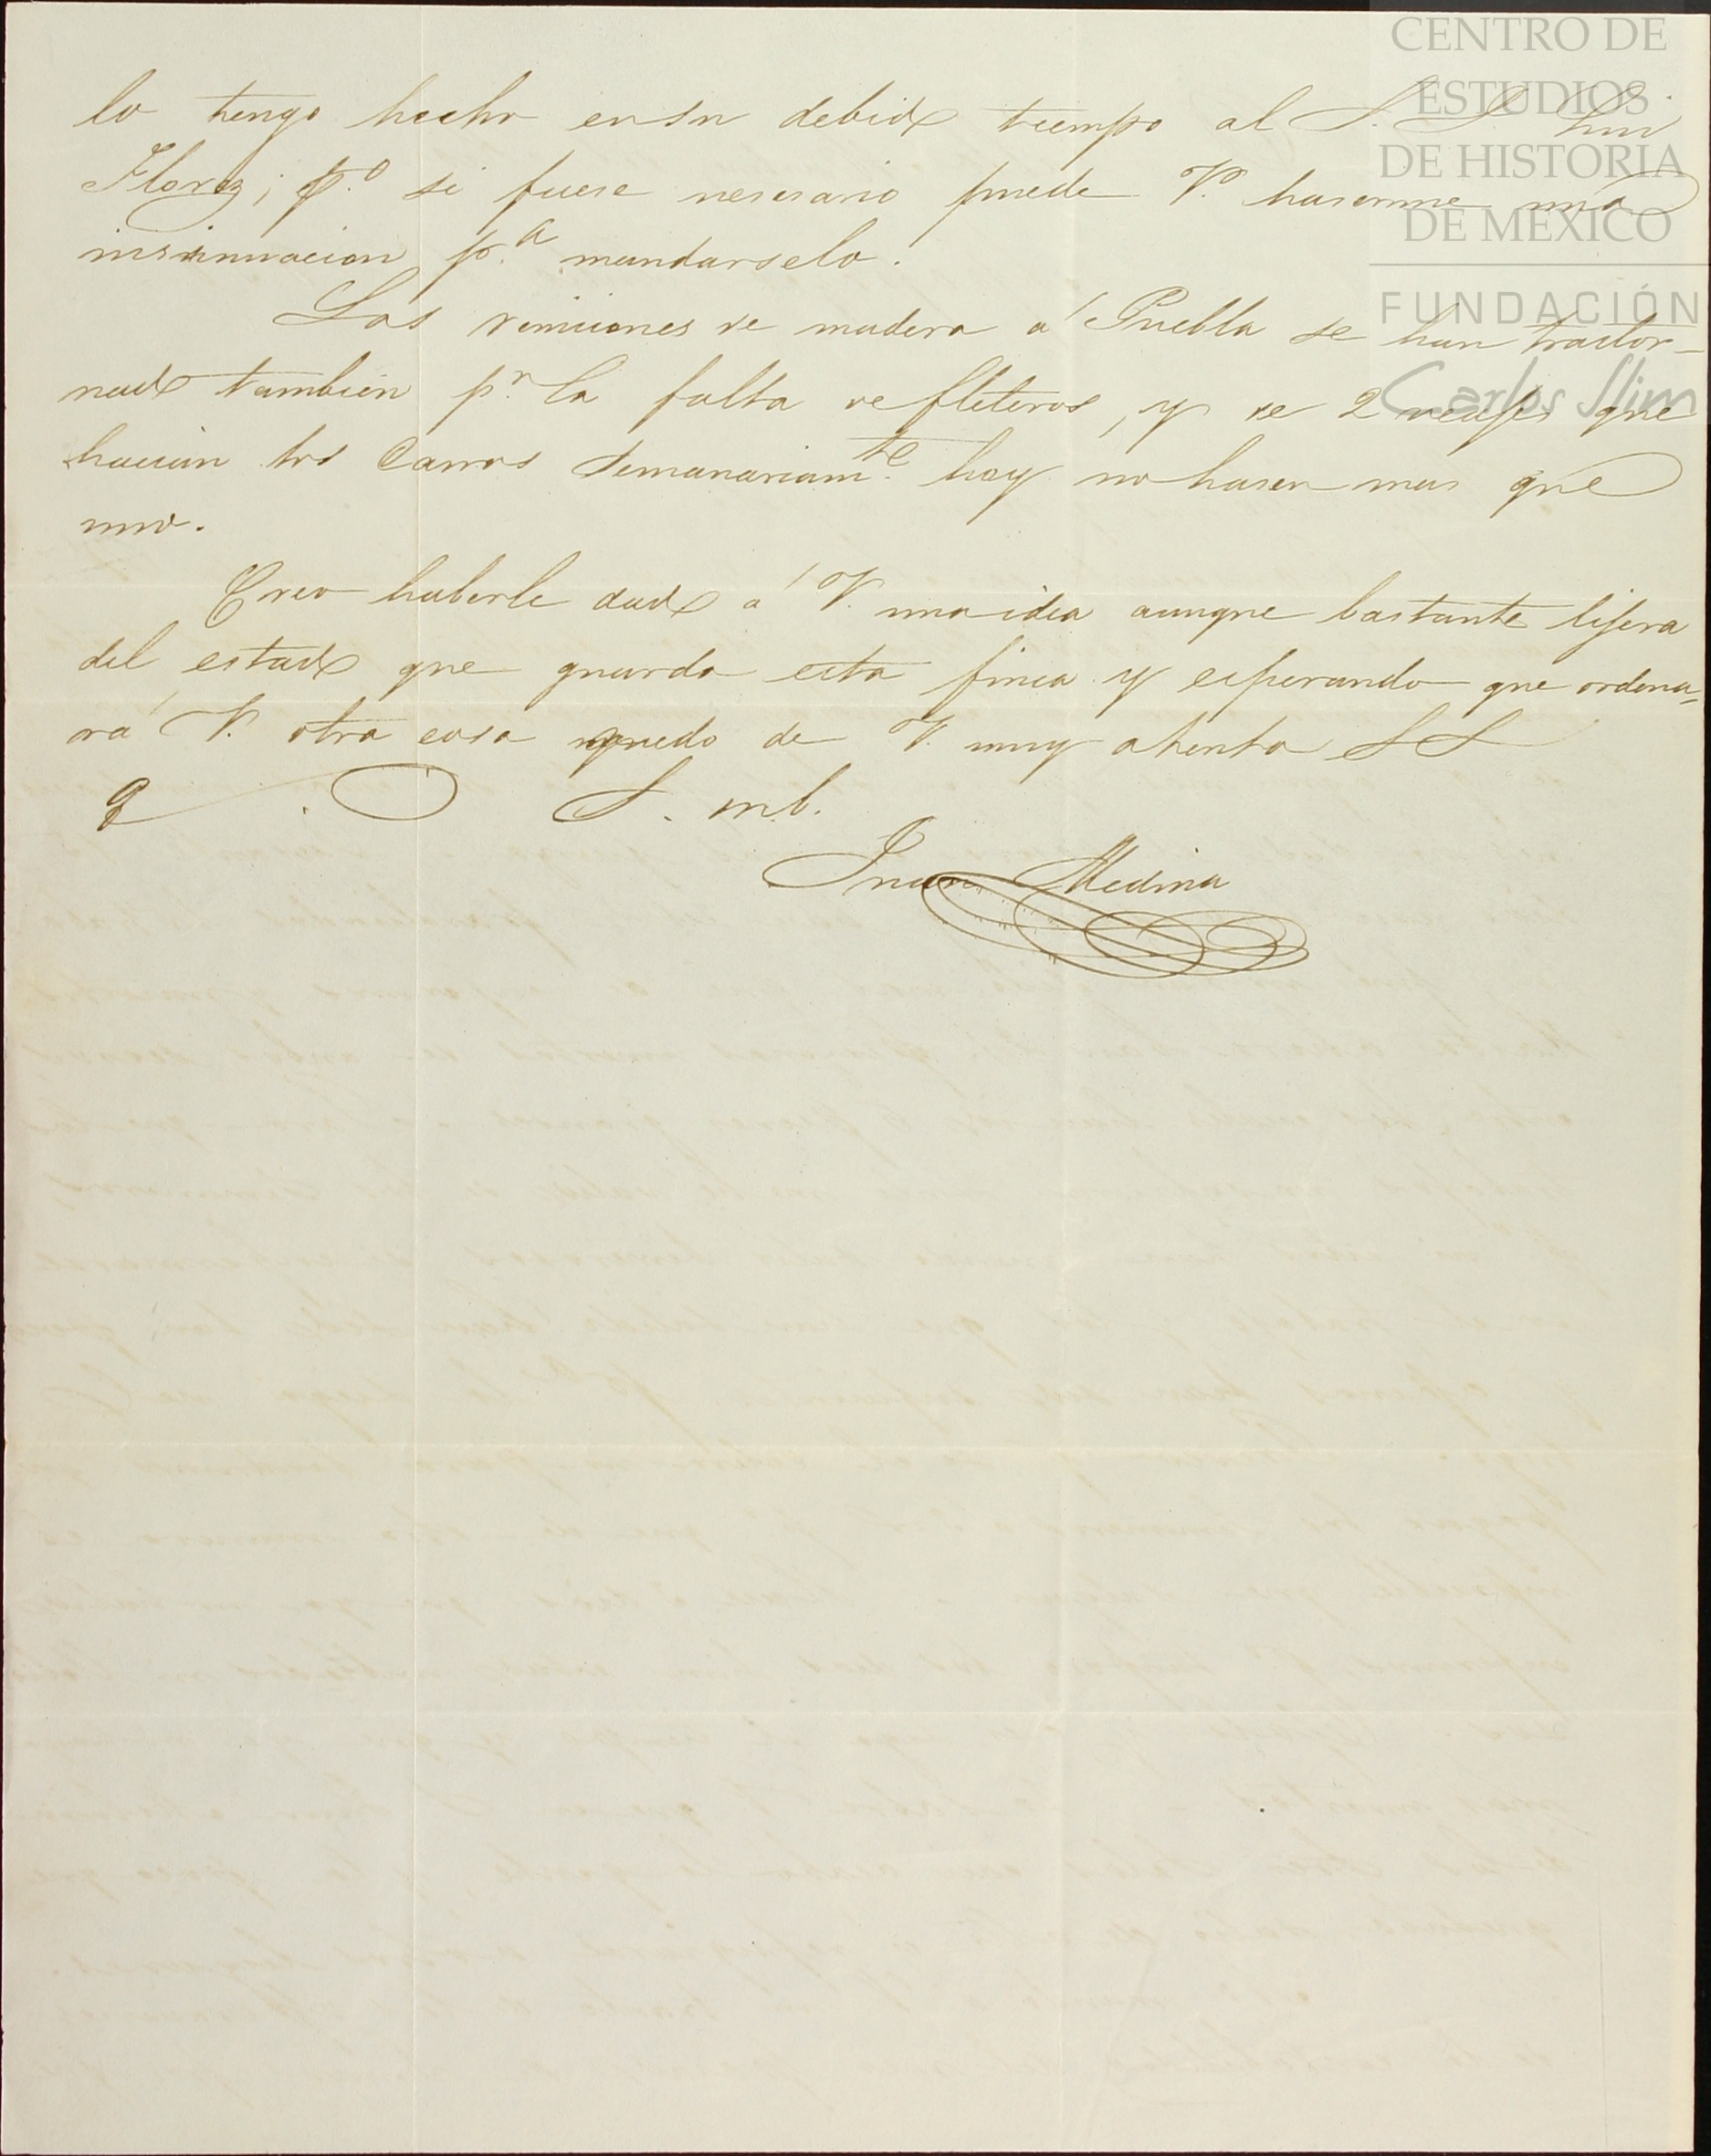 lo tengo hecho en su debido tiempo al S. D. Luis
Florez; p.º si fuese nesesario puede V. haserme una
insinuacion p.ª mandarselo.
Las remiciones de madera á Puebla se han trastor-
nado tambien p.r la falta de fleteros, y de 2 viajes que
hacian los Carros Semanariam.te hoy no hasen mas que
uno.
Creo haberle dado á V. una idea aunque bastante lijera
del estado que guarda esta finca y esperando que ordena-
rá V. otra cosa quedo de V. muy atento S S
Q S. m. b.
Juan Medina
CENTRO DE
ESTUDIOS
DE HISTORIA
DE MEXICO
FUNDACIÓN
Carlos Slim